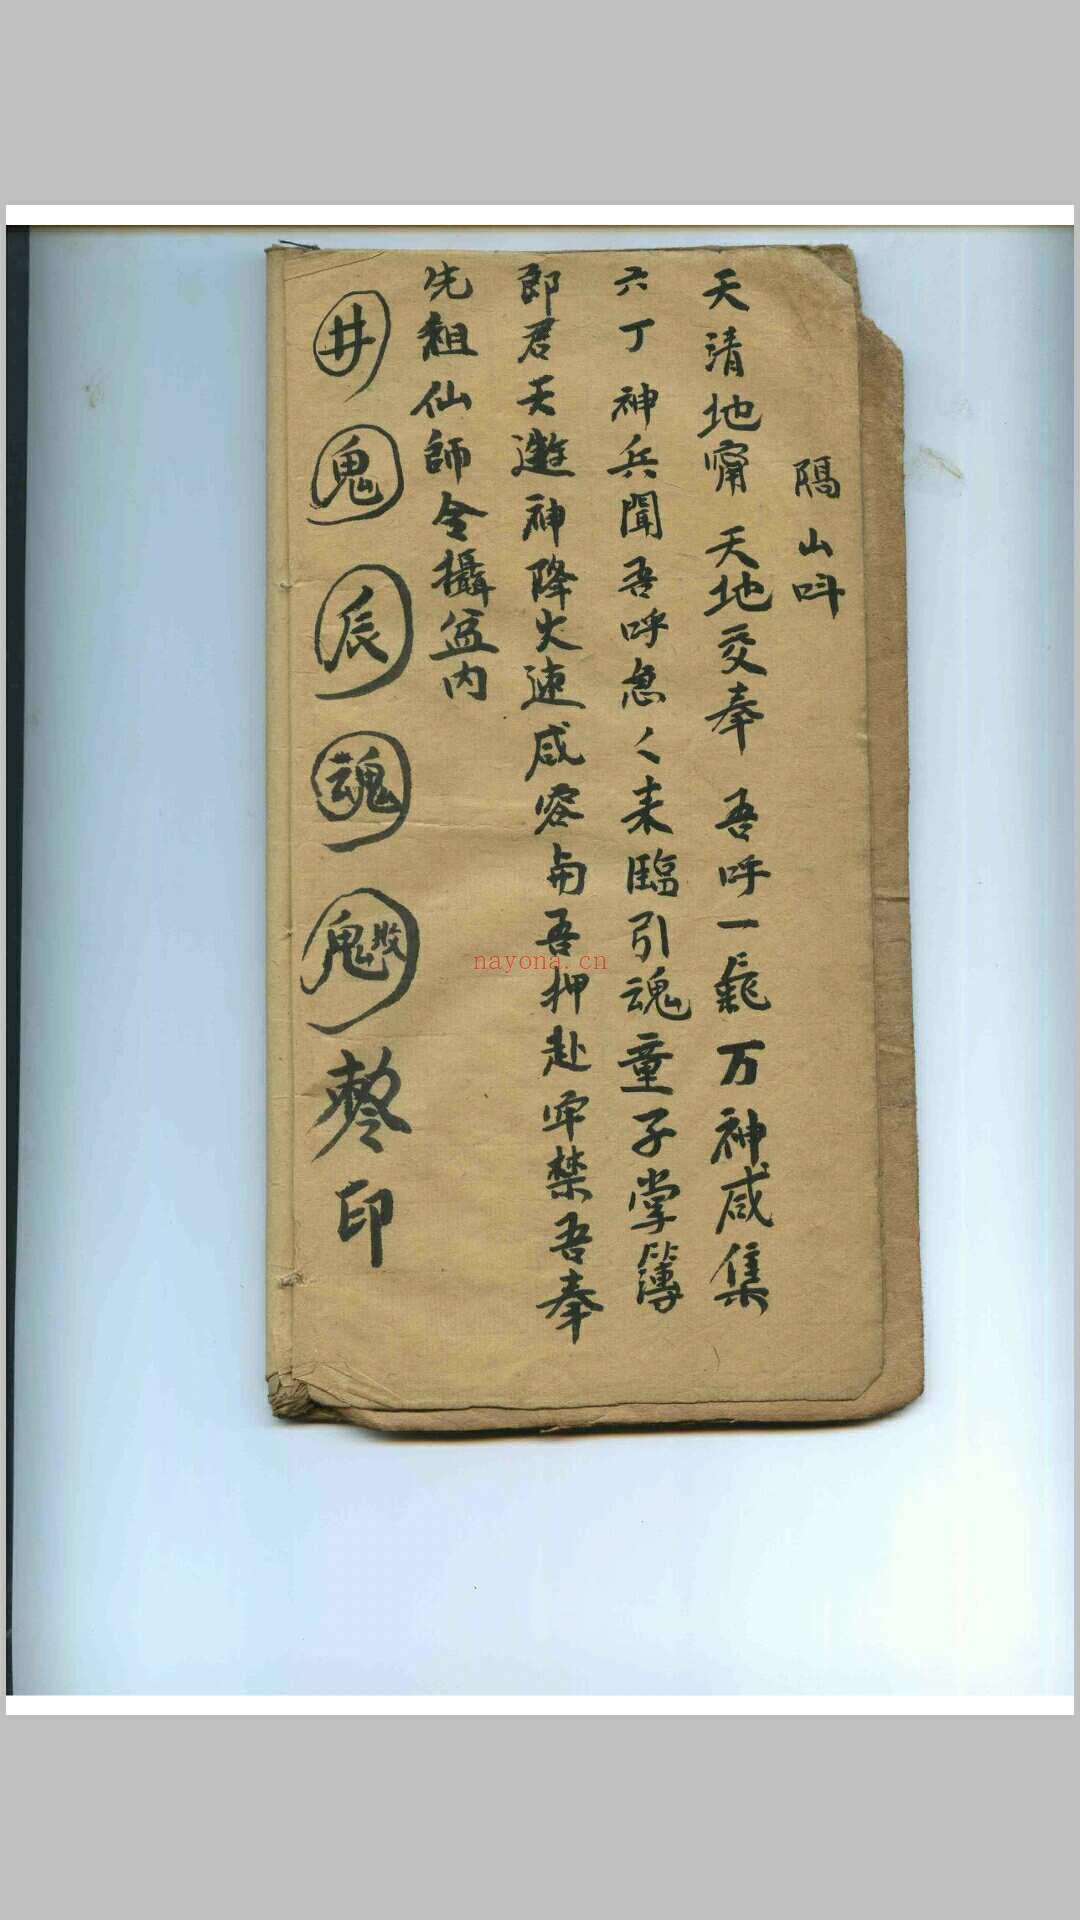 隔山呌
天清地甯天地交奉吾呼一毓万神咸集
六丁神兵聞吾呼急く来臨引魂童子掌簿
郎君天遊神降火速咸容与吾押赴牢禁吾奉
先祖仙師令攝盆内
井鬼辰魂印
nayona.cn